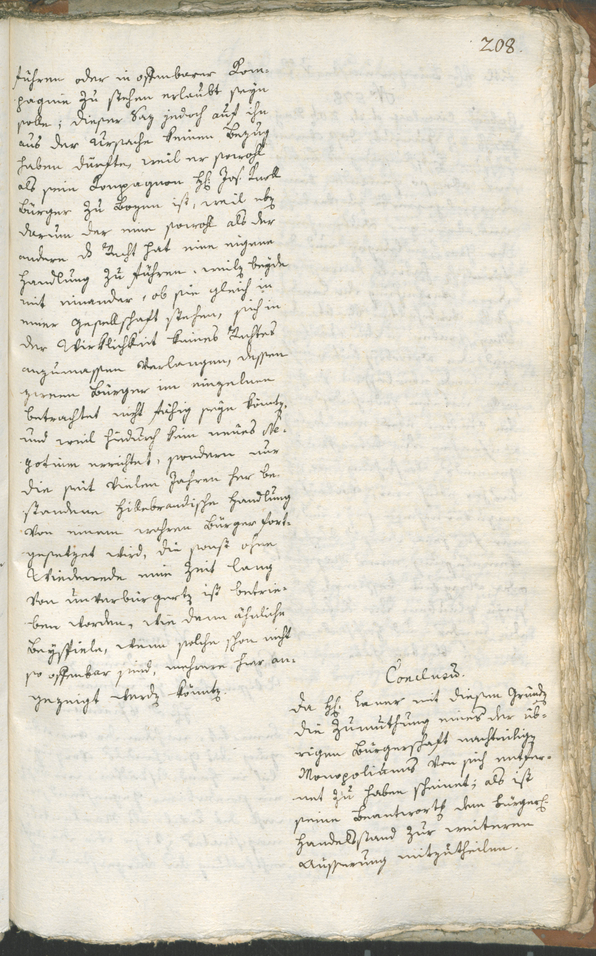 208.
führen oder in offenbarer Kom-
pagnie zu stehen erlaubt seyn
solle; dieser Saz jedoch auf ihn
aus der Ursache keinen Bezug
haben dürfte, weil er sowohl
als sein Kompagnon H: Jos.
Bürger zu Bozen ist, weil
darum der eine sowohl als der
andere d Recht hat eine eigene
Handlung zu führen, beyde
mit einander, ob sie gleich in
einer Gesellschaft stehen, sich in
der Wirklichkeit keines Rechtes
anzumassen verlangen, dessen
zween Bürger im einzelnen
betrachtet nicht fähig seyn könnt,
und weil hiedurch kein neues Ne-
gotium errichtet, sondern nur
die seit vielen Jahren her be-
standene Hillebrandische Handlung
von einem wahren Bürger fort-
gesetzet wird, die sonst ohne
Wiederrede eine Zeit lang
von unverbürgert ist betrie-
ben worden, wie dann ähnliche
Beyspiele, wenn solche schon nicht
so offenbar sind, mehrere hier an-
gezeigt werd könnt.
Conclusum.
Da H: mit diesen Gründ
die Zumuthung eines der üb-
rigen Bürgerschaft nachteilig
Monopoliums von sich entfer-
net zu haben scheinet; als ist
seine Beantwort dem bürgerl
Handelsstand zur weiteren
Äusserung mitzutheilen.